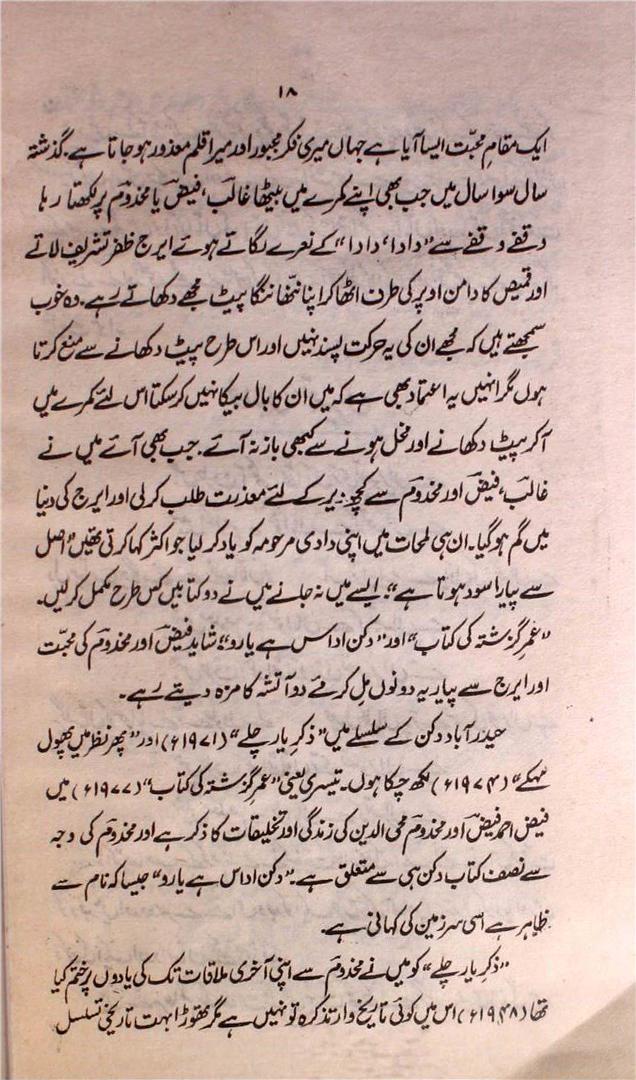 ۱۸
ایک مقامِ محبّت ایسا آیا ہے جہاں میری فکر مجبور اور میرا قلم معذور ہو جاتا ہے۔ گذشتہ
سال سوا سال میں جب بھی اپنے کمرے میں بیٹھا غالبؔ، فیضؔ یا مخدومؔ پر لکھتا رہا
وقفے وقفے سے "دادا، دادا" کے نعرے لگاتے ہوئے ایرج ظفر تشریف لاتے
اور قمیص کا دامن اوپر کی طرف اٹھا کر اپنا ننھا ننگا پیٹ مجھے دکھاتے رہے۔ وہ خوب
سمجھتے ہیں کہ مجھے ان کی یہ حرکت پسند نہیں اور اس طرح پیٹ دکھانے سے منع کرتا
ہوں مگر انہیں یہ اعتماد بھی ہے کہ میں ان کا بال بیکا نہیں کر سکتا اس لئے کمرے میں
آ کر پیٹ دکھانے اور مخل ہونے سے کبھی باز نہ آئے۔ جب بھی آئے میں نے
غالبؔ، فیضؔ اور مخدومؔ سے کچھ دیر کے لئے معذرت طلب کر لی اور ایرج کی دنیا
میں گم ہو گیا۔ ان ہی لمحات میں اپنی دادی مرحومہ کو یاد کر لیا جو اکثر کہا کرتی تھیں "اصل
سے پیارا سود ہوتا ہے"۔ ایسے میں نہ جانے میں نے دو کتابیں کس طرح مکمل کر لیں۔
"عمرِ گزشتہ کی کتاب" اور "دکن اداس ہے یارو"، شاید فیضؔ اور مخدومؔ کی محبّت
اور ایرج سے پیار یہ دونوں مل کر مئے دو آتشہ کا مزہ دیتے رہے۔
حیدرآباد دکن کے سلسلے میں "ذکرِ یار چلے" (۱۹۷۱ء) اور "پھر نظر میں پھول
مہکے" (۱۹۷۴ء) لکھ چکا ہوں۔ تیسری یعنی "عمرِ گزشتہ کی کتاب" (۱۹۷۷ء) میں
فیض احمد فیضؔ اور مخدومؔ محی الدین کی زندگی اور تخلیقات کا ذکر ہے اور مخدومؔ کی وجہ
سے نصف کتاب دکن ہی سے متعلق ہے۔ "دکن اداس ہے یارو" جیسا کہ نام سے
ظاہر ہے اسی سرزمین کی کہانی ہے۔
"ذکرِ یار چلے" کو میں نے مخدومؔ سے اپنی آخری ملاقات تک کی یادوں پر ختم کیا
تھا (۱۹۴۸ء) اس میں کوئی تاریخ وار تذکرہ تو نہیں ہے مگر تھوڑا بہت تاریخی تسلسل